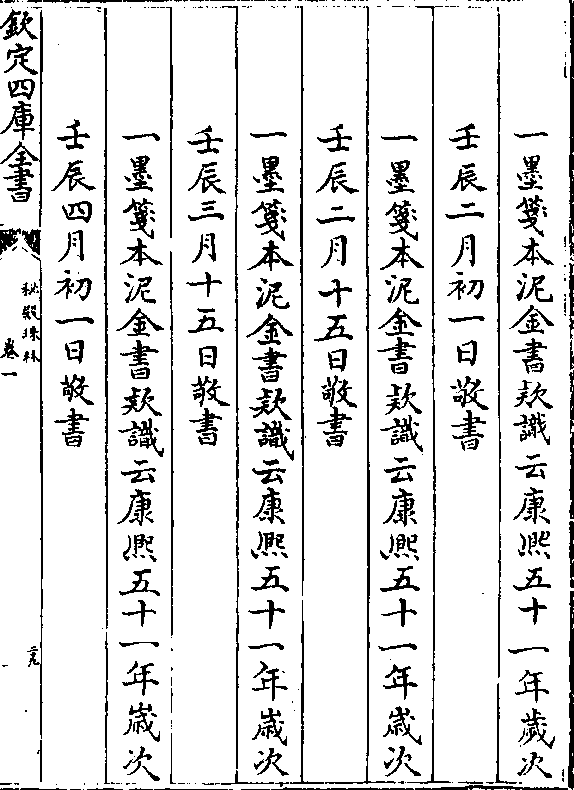 一墨箋本泥金書款識云康熙五十一年歲次
壬辰二月初一日敬書
一墨箋本泥金書款識云康熙五十一年歲次
壬辰二月十五日敬書
一墨箋本泥金書款識云康熙五十一年歲次
壬辰三月十五日敬書
一墨箋本泥金書款識云康熙五十一年歲次
壬辰四月初一日敬書
欽定四庫全書
秘殿珠林
卷一
二九